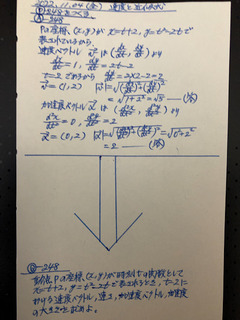 2022.11.04(金) 速度と近似式
A-248
Pの座標、(x,y)が x=t+2, y=t²-2tで
表されているから
速度ベクトル v は (dx/dt, dy/dt) より
dx/dt = 1, dy/dt = 2t-2
t=2 dy/dt = 2×2-2=2
v=(1,2) |v|=√(dx/dt)²+(dy/dt)²
=√1²+2² = √5 —(答)
加速度ベクトル α は (d²x/dt², d²y/dt²) より
d²x/dt² = 0, d²y/dt² = 2
α=(0,2) |α|=√(d²x/dt²)²+(d²y/dt²)² =√0²+2²
=2 —(答)
Q-248
点Pの座標、(x,y)が時刻tの関数として
x=t+2, y=t²-2tで表されるとき、t=2に
おける速度ベクトル、速さ、加速度ベクトル、加速度
の大きさを求めよ。